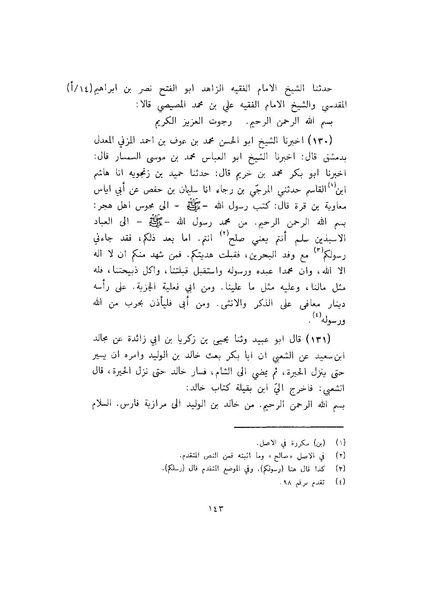 حدثنا الشيخ الامام الفقيه الزاهد ابو الفتح نصر بن ابراهيم (١٤/أ)
المقدسي والشيخ الامام الفقيه علي بن محمد المصيصي قالا:
بسم الله الرحمن الرحيم. رجوت العزيز الكريم
(١٣٠) اخبرنا الشيخ ابو الحسن محمد بن عوف بن احمد المزني المعدل
بدمشق قال: اخبرنا الشيخ ابو العباس محمد بن موسى السمسار قال:
اخبرنا ابو بكر محمد بن خريم قال: حدثنا حميد بن زنجويه انا هاشم
ابن(١) القاسم حدثني المرجّي بن رجاء انا سليان بن حفص عن أبي اياس
معاوية بن قرة قال: كتب رسول الله –ﷺ– الى مجوس اهل هجر:
بسم الله الرحمن الرحيم. من محمد رسول الله –ﷺ– الى العباد
الاسبذين سلم أنتم يعني صلح(٢) انتم. اما بعد ذلكم، فقد جاءني
رسولكم(٣) مع وفد البحرين، فقبلت هديتكم. فمن شهد منكم ان لا اله
الا الله، وان محمدا عبده ورسوله واستقبل قبلتنا، واكل ذبيحتنا، فله
مثل مالنا، وعليه مثل ما علينا. ومن أبى فعلية الجزية. على رأسه
دينار معافى على الذكر والانثى. ومن أبى فليأذن بحرب من الله
ورسوله(٤).
(١٣١) قال ابو عبيد وثنا يحيى بن زكريا بن ابي زائدة عن مجالد
ابن سعيد عن الشعبي ان ابا بكر بعث خالد بن الوليد وامره ان يسير
حتى ينزل الحيرة، ثم يمضي الى الشام، فسار خالد حتى نزل الحيرة، قال
الشعبي: فاخرج اليّ ابن بقيلة كتاب خالد:
بسم الله الرحمن الرحيم. من خالد بن الوليد الى مرازبة فارس. السلام
(١) (بن) مكررة في الاصل.
(٢) في الاصل «صالح» وما اثبته فمن النص المتقدم.
(٣) كذا قال هنا (رسولكم). وفي الموضع المتقدم قال (رسلكم).
(٤) تقدم برقم ٩٨.
١٤٣